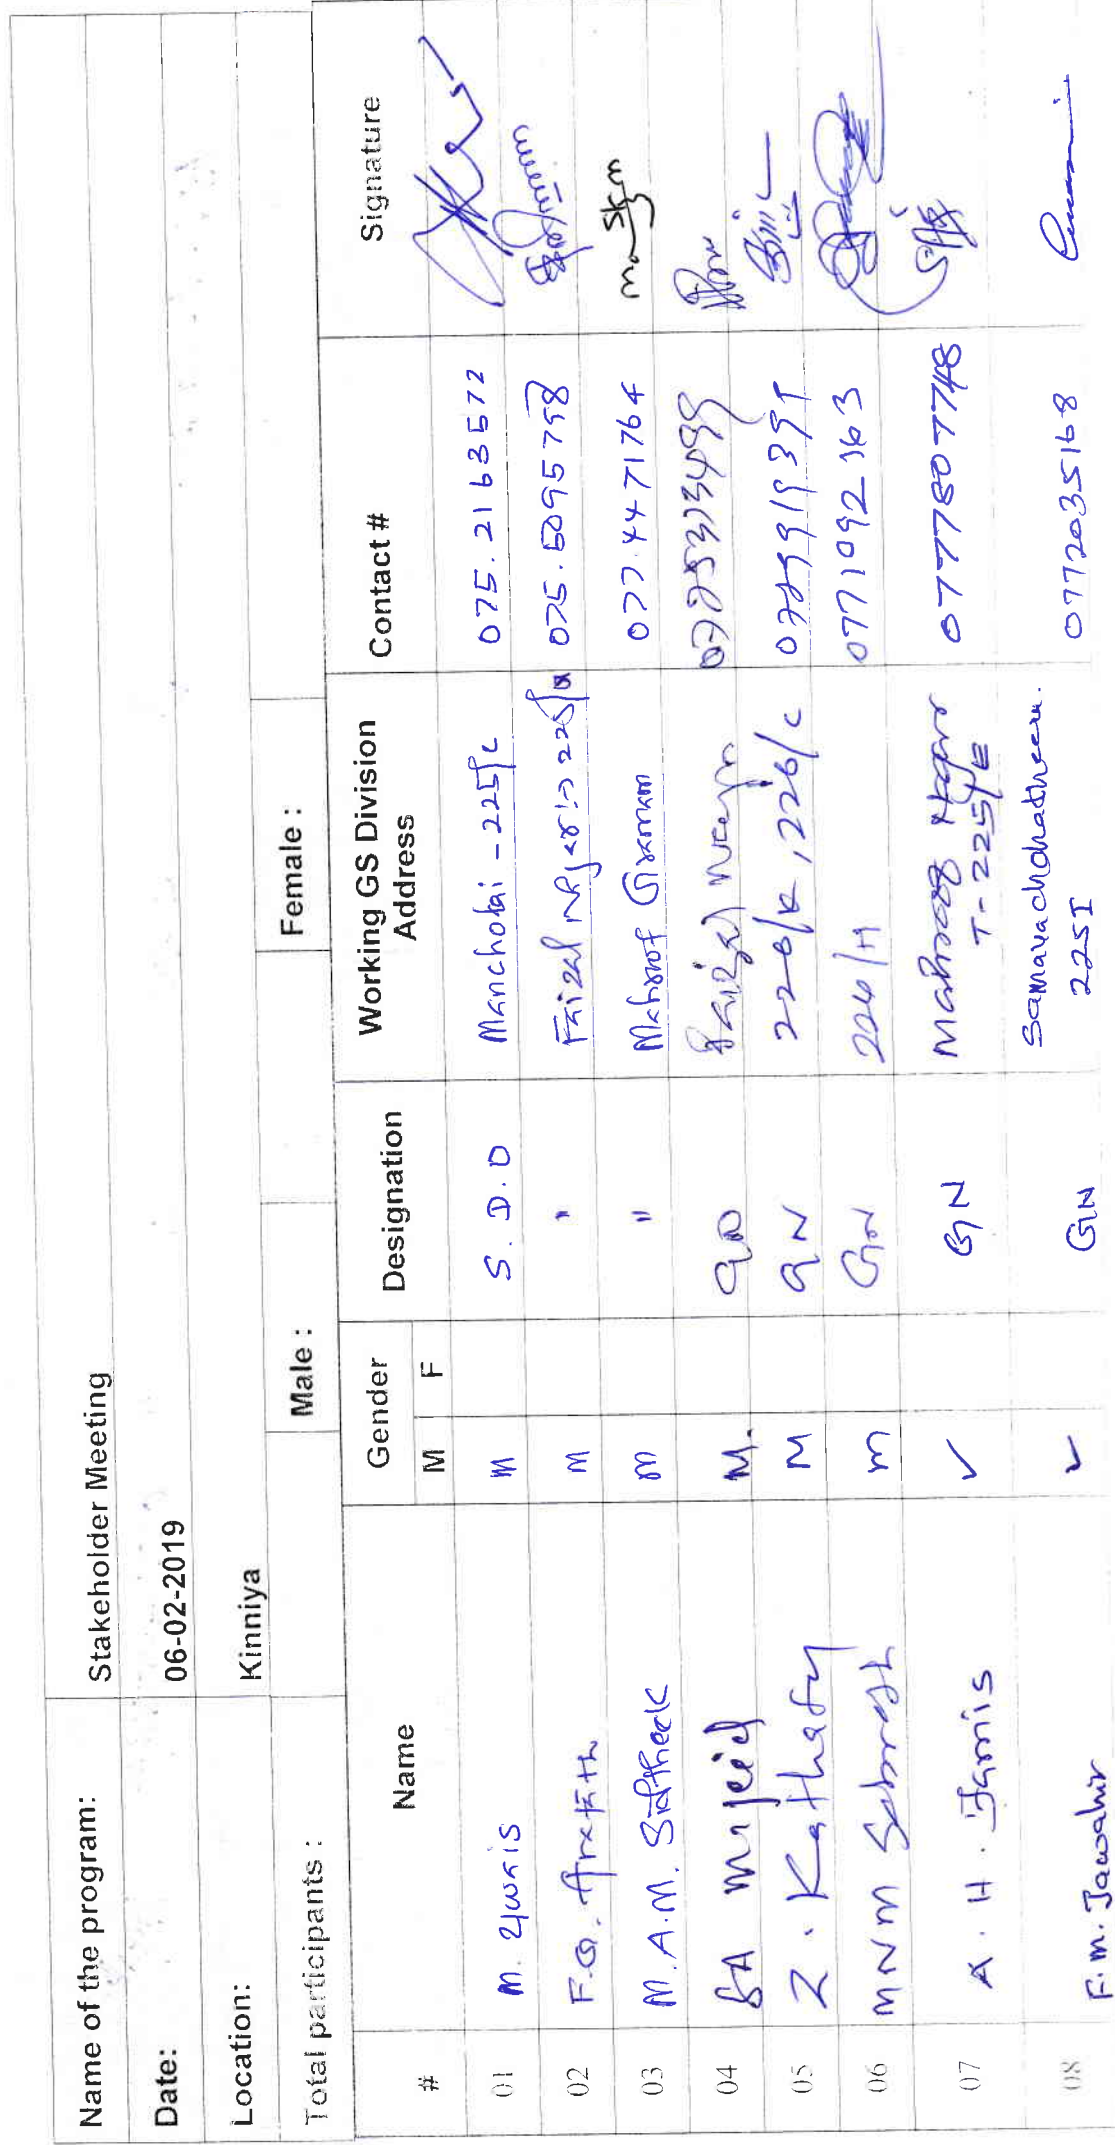 Name of the program: Stakeholder Meeting
Date: 06-02-2019
Location: Kinniya
Total participants : Male : Female :
# Name Gender Designation Working GS Division Address Contact # Signature
M F
01 M. Uwais M S. D. O Mancholai - 225/C 075. 2163572
02 F.G. Arafath M " Faizal Nagar 075. 5095798
03 M. A. M. Sidtheek M " Mahroof Gramam 077. 4471764
04 SA Majeid M. Faizal Nagar
05 Z. Kathafy M GN 226/K, 226/C
06 MNM M GN 226/H 0771092363
07 A. H. Jamis ✓ GN Mahroof Nagar 0777807748
T - 225/E
08 F. M. Jawahir ✓ GN Samavachchatheevu. 0772035168
225 I